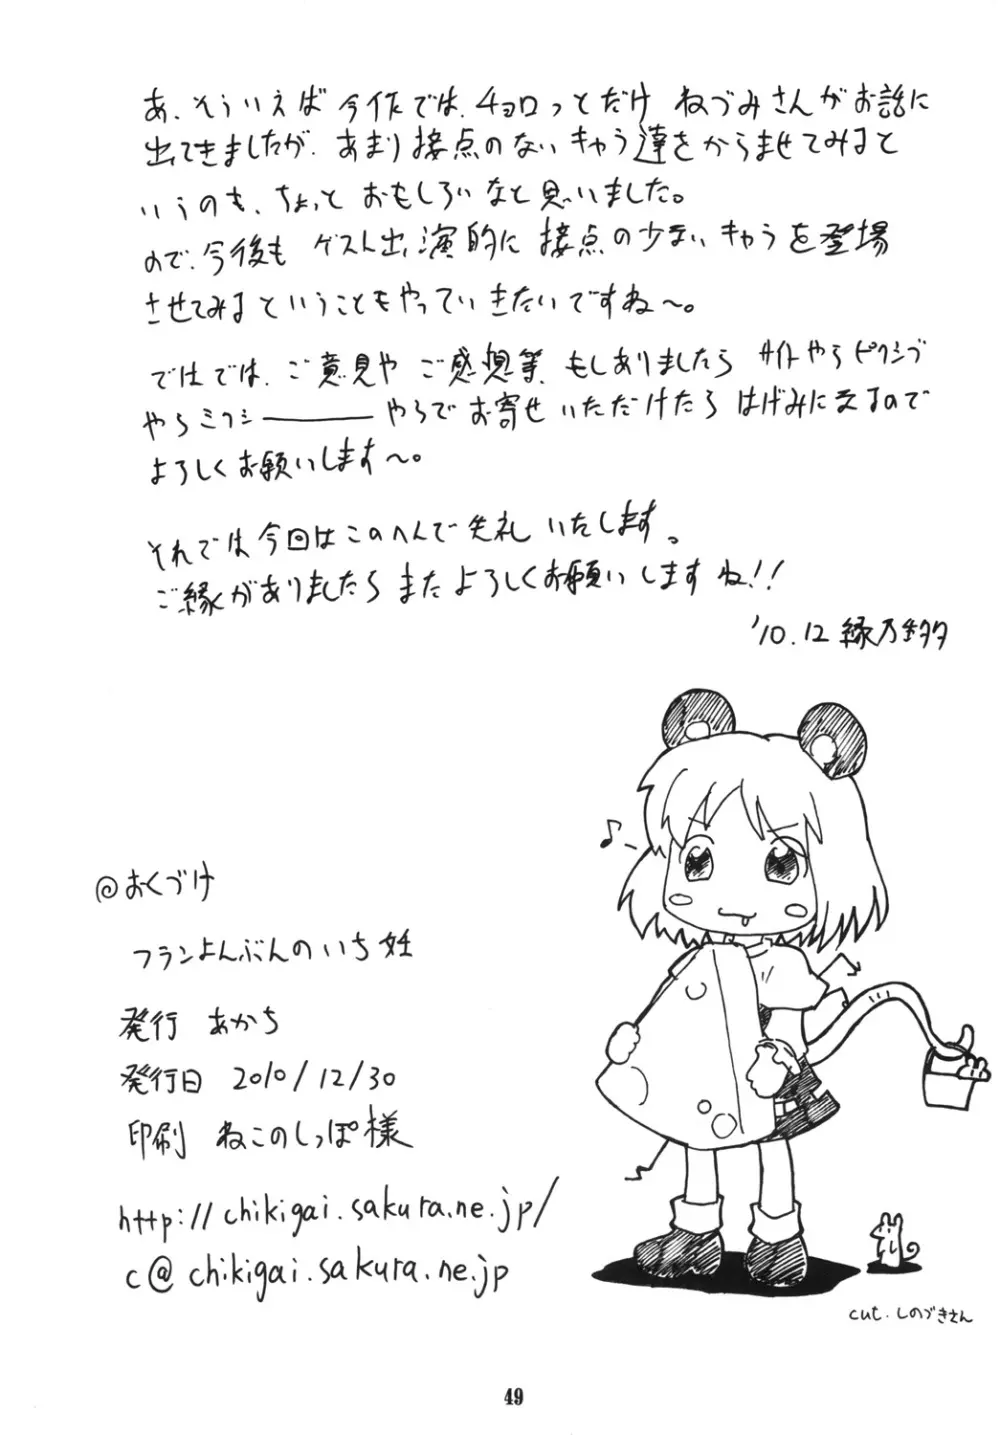 あ、そういえば今作では、チョロっとだけ ねづみさんがお話に
出てきましたが、あまり接点のないキャラ達をからませてみるど
いうのも、ちょっと おもしろいなと思いました。
ので、今後も ゲスト出演的に 接点の少ないキャラを登場
させてみるということもやっていきたいですね〜。
ではでは、ご意見や ご感想等、もしありましたら サイトやらピクシブ
やらミクシーーーーやらでお寄せいただけたら はげみになるので
よろしくお願いします〜。
それでは今回はこのへんで失礼いたします。
ご縁がありましたらまたよろしくお願いしますね!!
'10.12 縁乃
♪
@おくづけ
フランよんぶんのいち妊
発行 あかち
発行日 2010/12/30
印刷 ねこのしっぽ様
http://chikigai.sakura.ne.jp/
c@chikigai.sakura.ne.jp
cut. しのづきさん
49